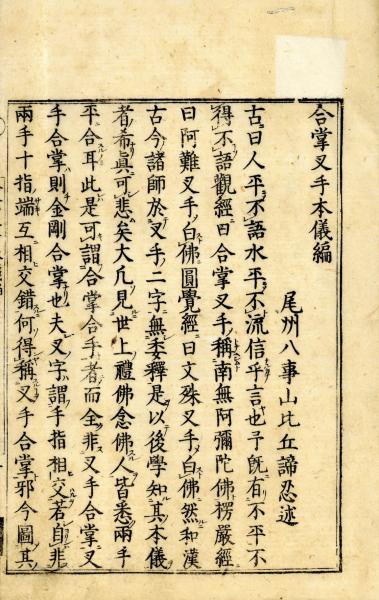 合掌叉手本儀編
尾州八事山比丘諦忍述
古曰人平不語水平不流信乎言也予既有不平不
得不語觀經曰合掌叉手稱南無阿彌陀佛楞嚴經
曰阿難叉手白佛圓覺經曰文殊叉手白佛然和漢
古今諸師於叉手二字無委釋是以後學知其本儀
者希眞可悲矣大凡見世上禮佛念佛人皆悉兩手
平合耳此是可謂合掌合手者而全非叉手合掌叉
手合掌則金剛合掌也夫叉字謂手指相交若自非
兩手十指端互相交錯何得稱叉手合掌邪今圖其